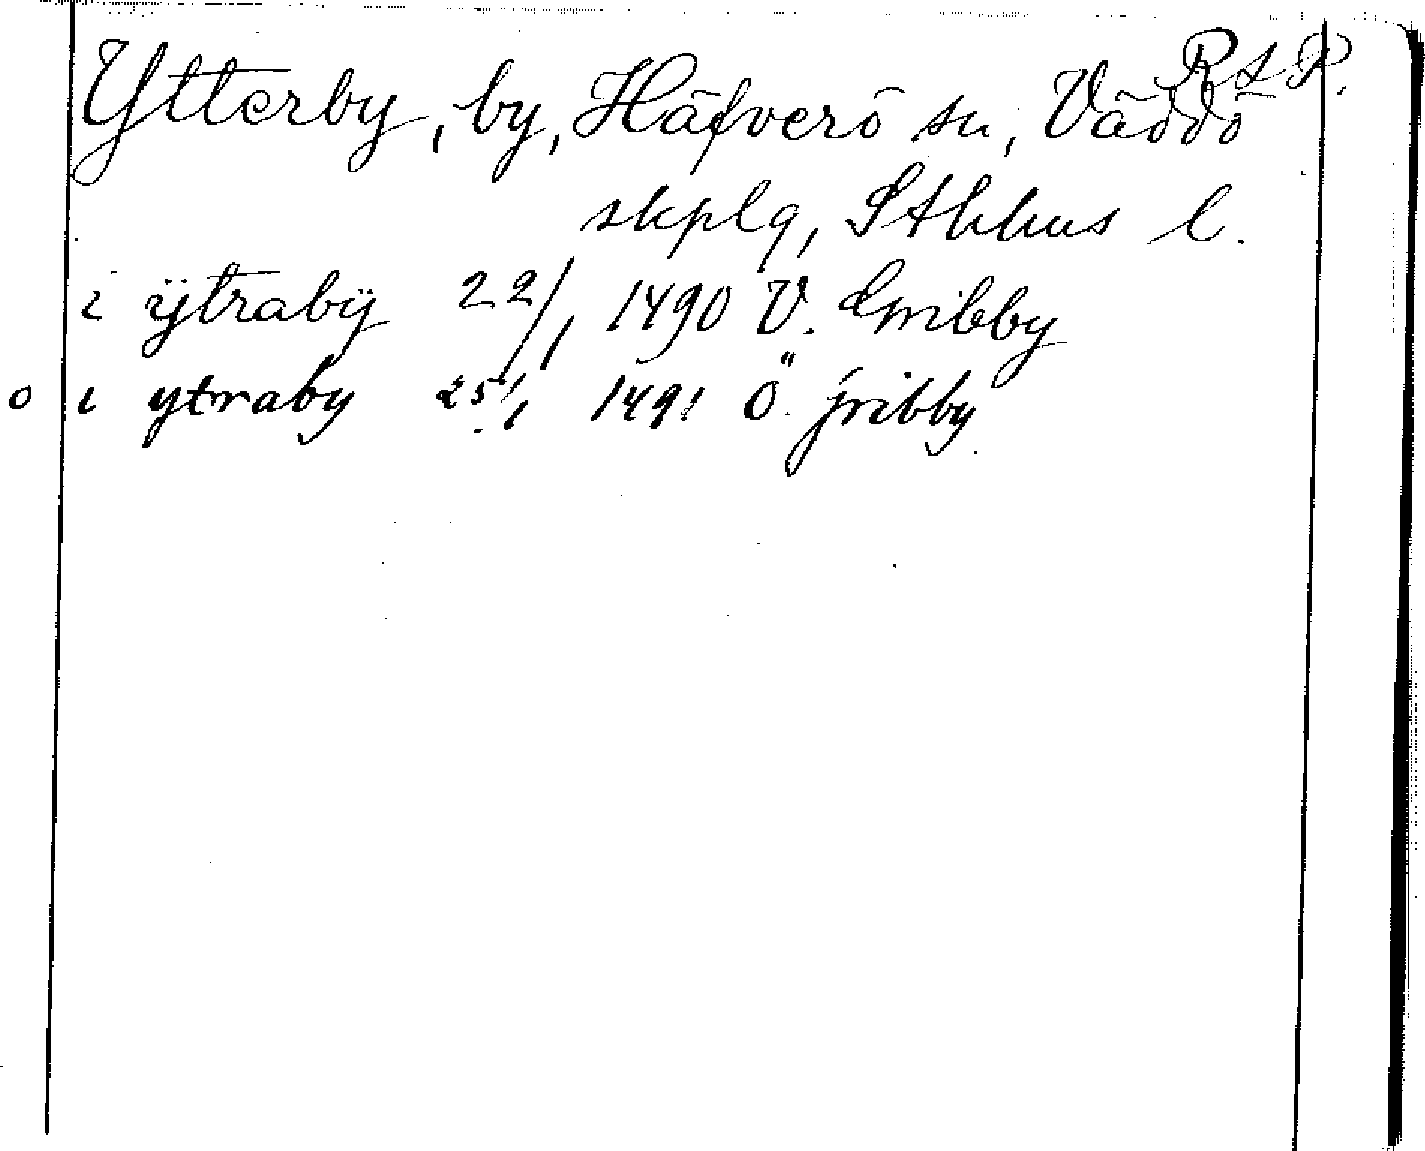 R A P.
Ytterby, by, Häfverö sn, Väddö
skplg, Sthlms l.
i ÿtrabÿ 22/1 1490 V. Emibby
o i ytraby 25/1 1491 Ö. fribby